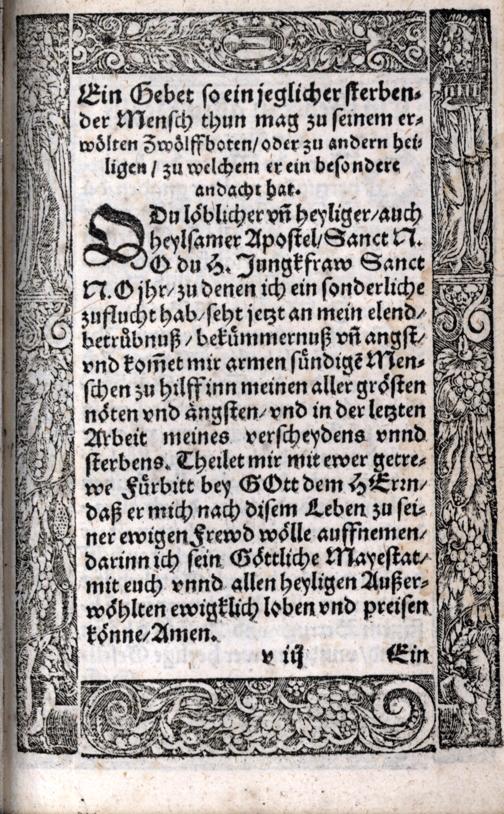 Ein Gebet so ein jeglicher sterben-
der Mensch thun mag zu seinem er-
wölten Zwölffboten/ oder zu andern hei-
ligen / zu welchem er ein besondere
andacht hat.
O Du löblicher vñ heyliger/ auch
heylsamer Apostel/ Sanct N.
O du H. Jungkfraw Sanct
N. O jhr/ zu denen ich ein sonderliche
zuflucht hab/ seht jetzt an mein elend/
betrůbnuß / bekümmernuß vñ angst/
vnd kom̄et mir armen sündigẽ Men-
schen zu hilff inn meinen aller grösten
nöten vnd ängsten/ vnd in der letzten
Arbeit meines verscheydens vnnd
sterbens. Theilet mir mit ewer getre-
we Fürbitt bey GOtt dem HErrn/
daß er mich nach disem Leben zu sei-
ner ewigen Frewd wölle auffnemen/
darinn ich sein Göttliche Mayestat/
mit euch vnnd allen heyligen Außer-
wöhlten ewigklich loben vnd preisen
könne/ Amen.
v iij Ein